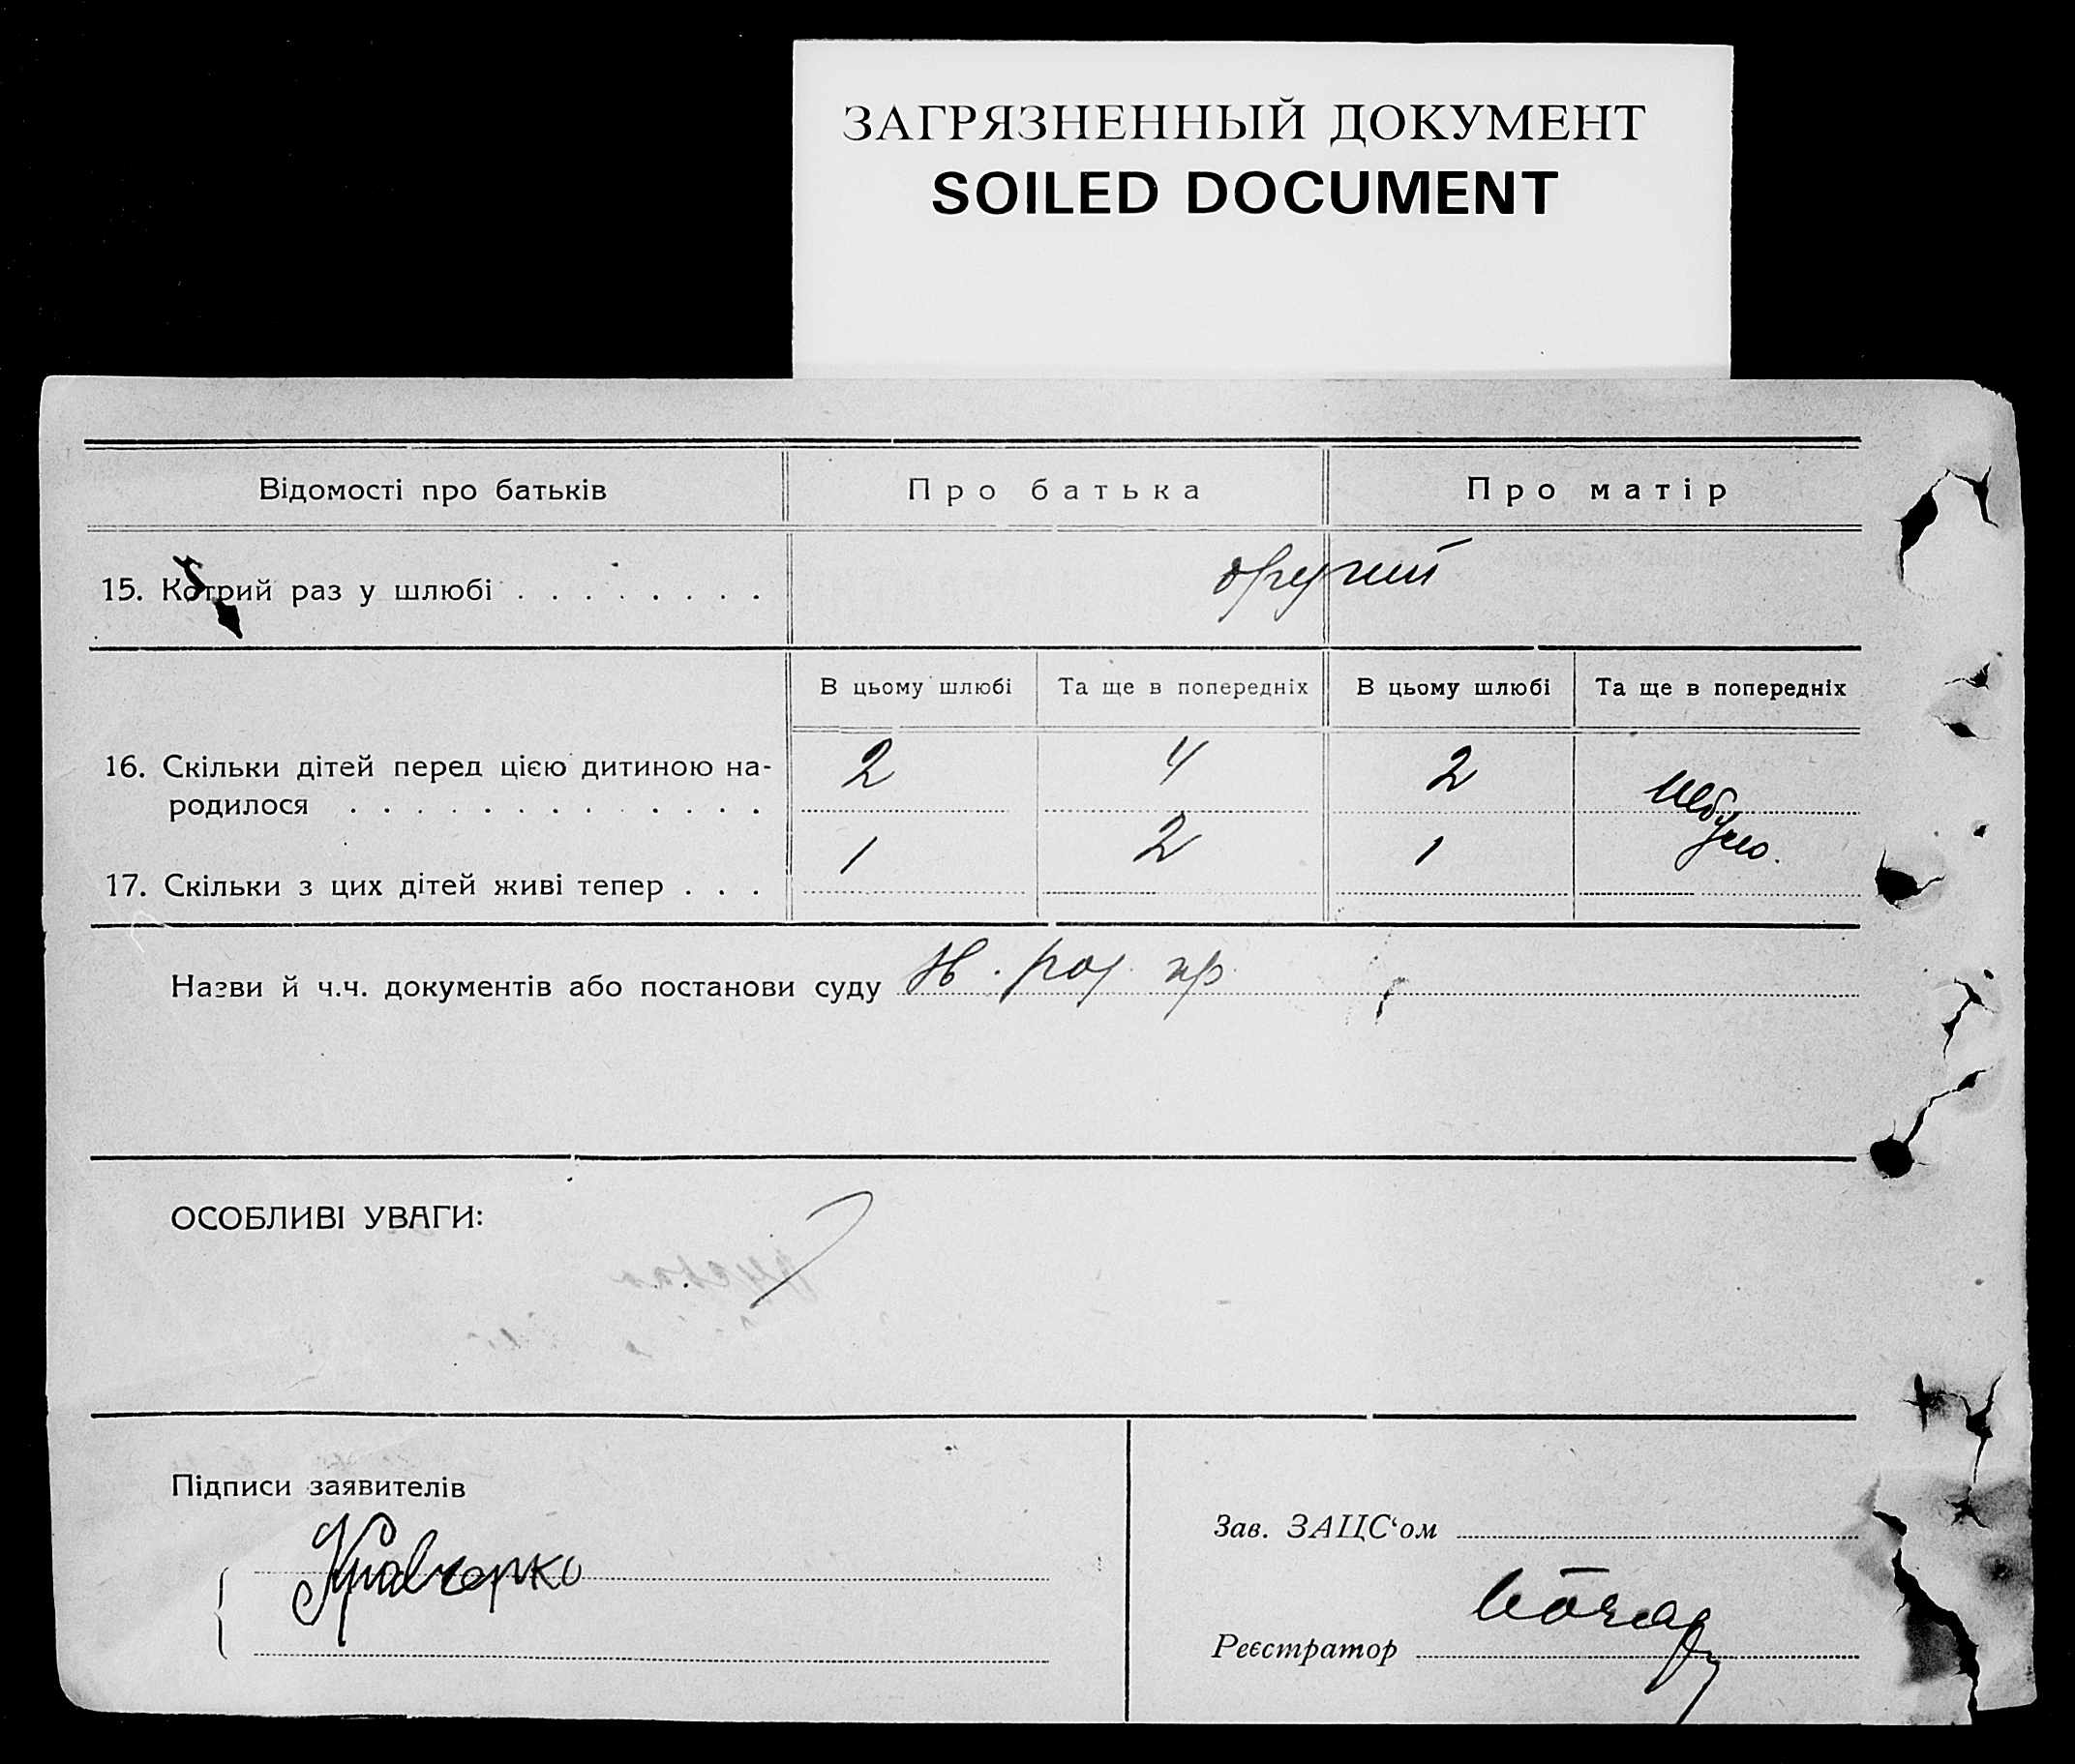 ЗАГРЯЗНЕННЫЙ ДОКУМЕНТ
SOILED DOCUMENT
Відомості про батьків Про батька Про матір
15. Котрий раз у шлюбі . . . . . . . . другий
В цьому шлюбі Та ще в попередніх В цьому шлюбі Та ще в попередніх
16. Скільки дітей перед цією дитиною на-
родилося . . . . . . . . . . . . . 2 4 2 небуло.
17. Скільки з цих дітей живі тепер . . . 1 2 1
Назви й ч.ч. документів або постанови суду
ОСОБЛИВІ УВАГИ:
Підписи заявителів
Кравченко
Зав. ЗАЦС‘ом
Реєстратор